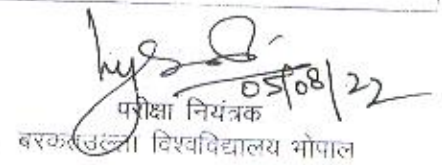 05/08/22
परीक्षा नियंत्रक
बरकतउल्ला विश्वविद्यालय भोपाल